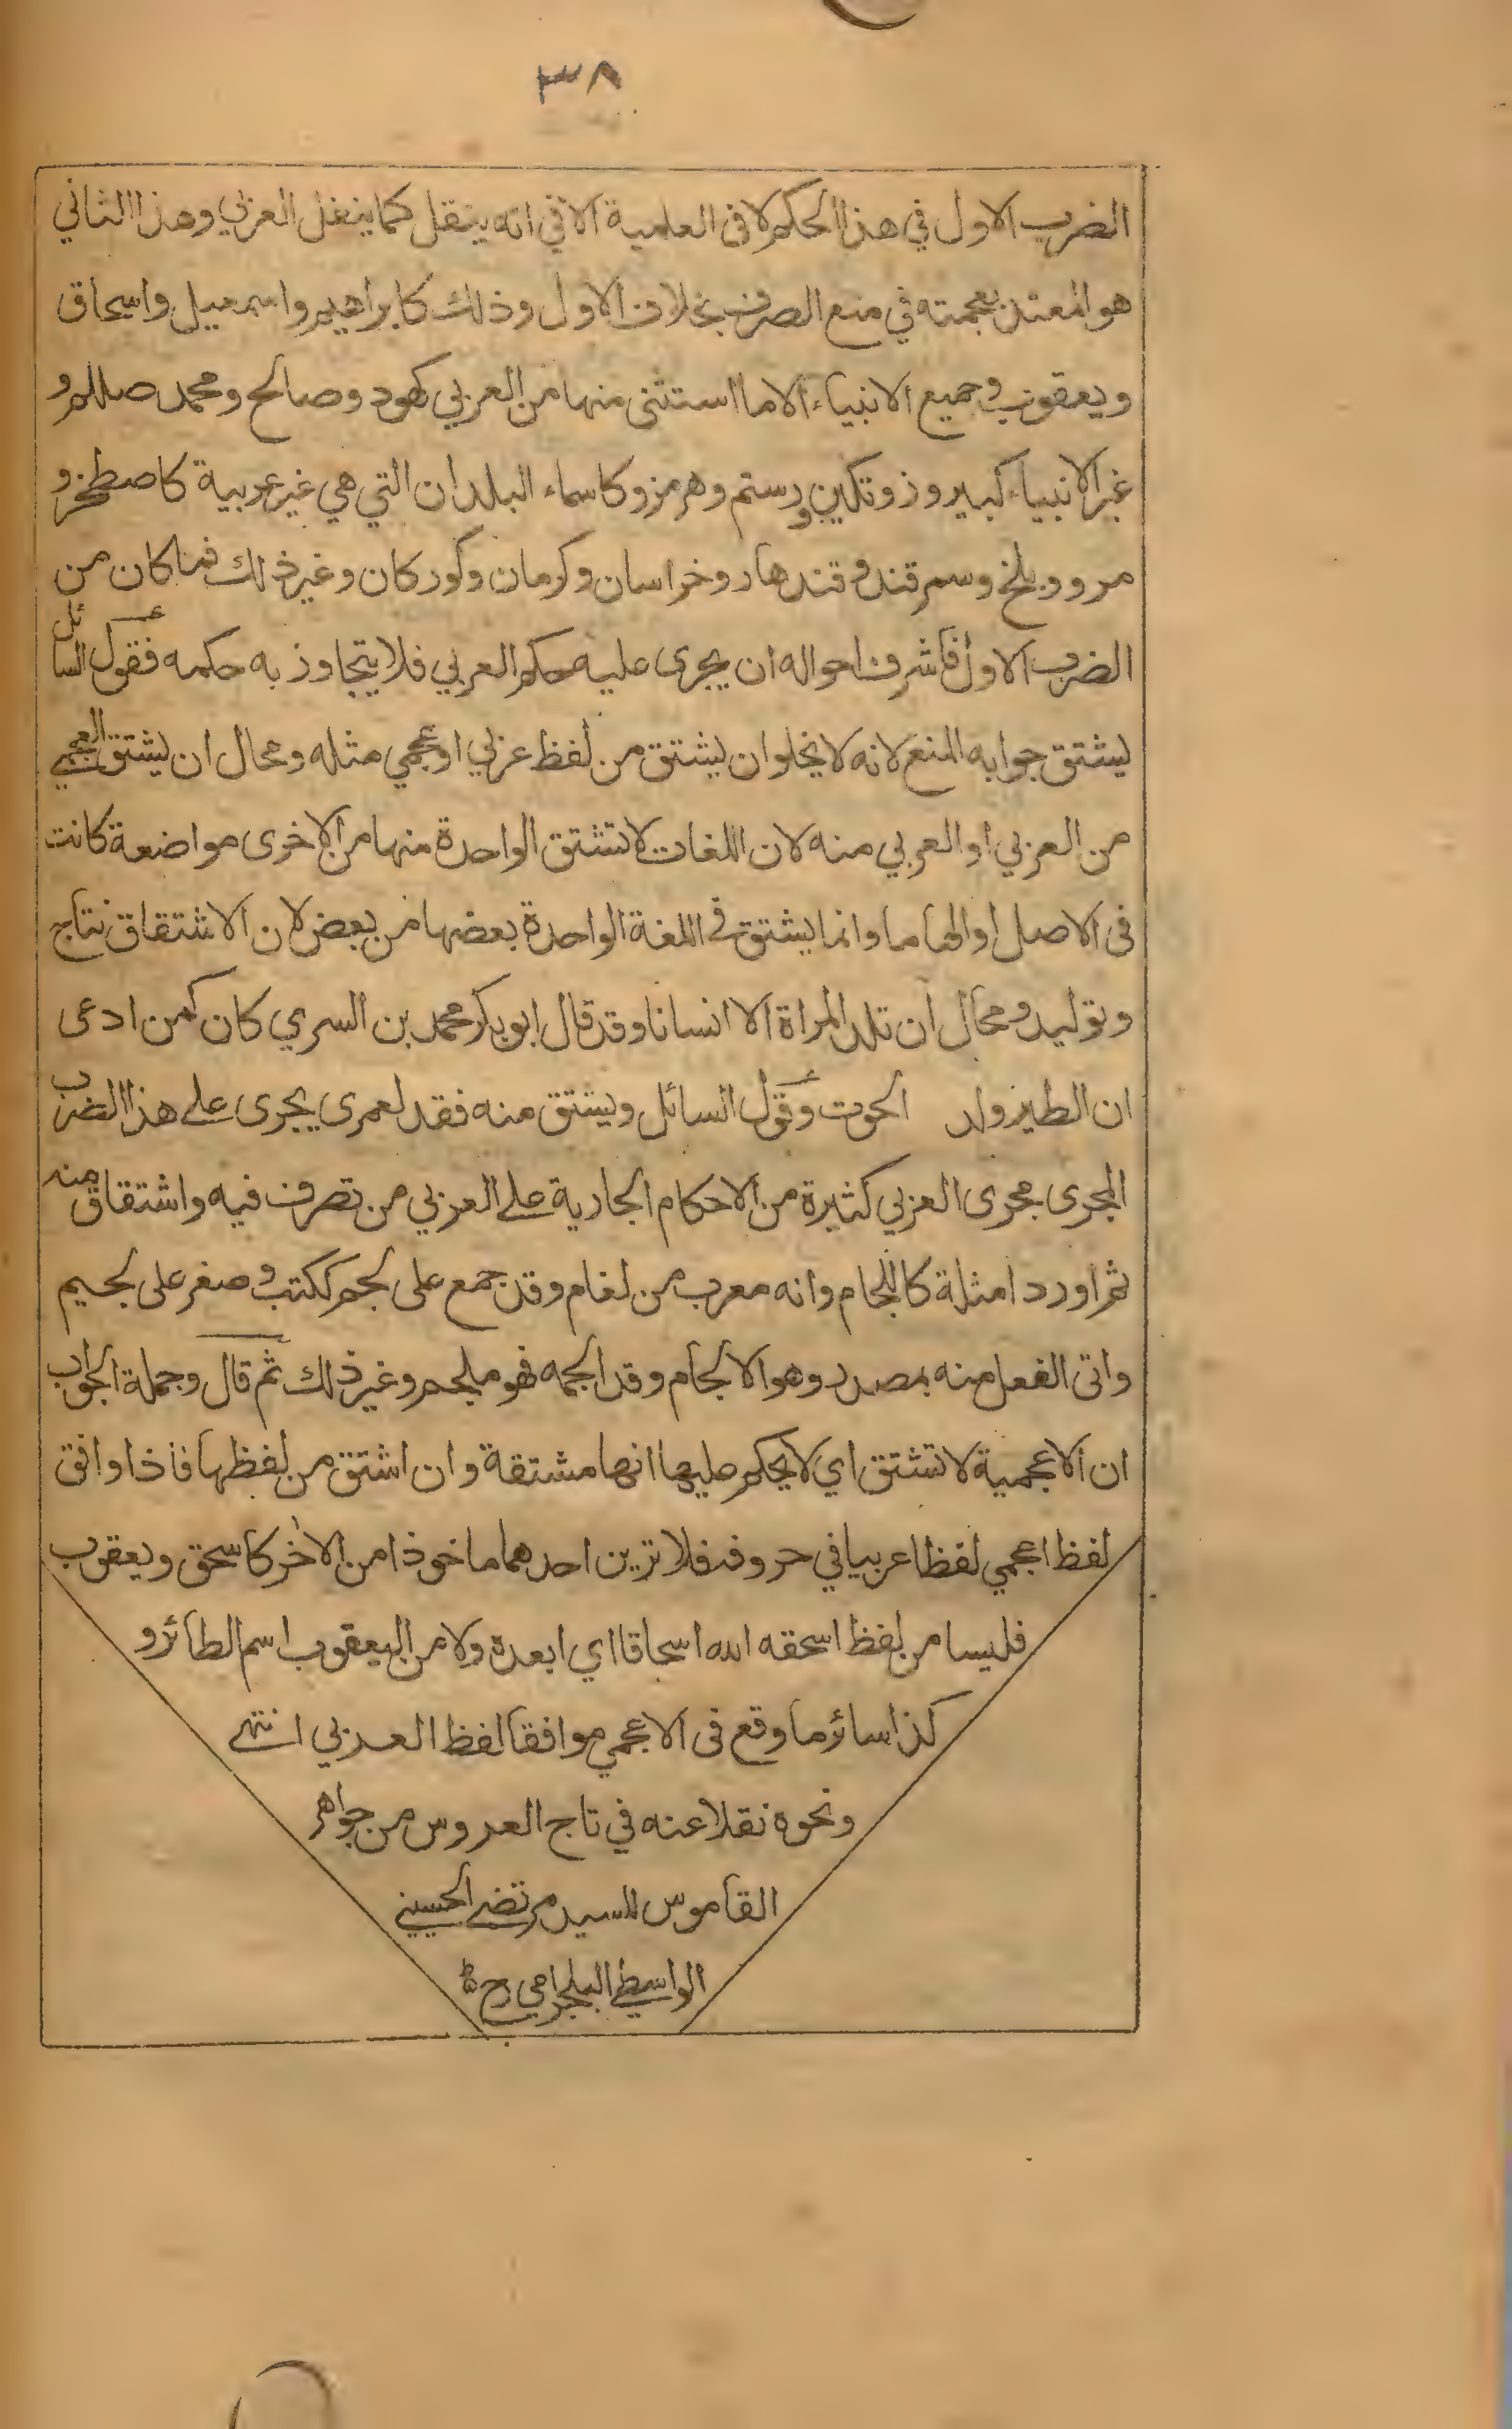 ٣٨
الضرب الاول في هذا الحكم لا فى العلمية الا في انه ينقل كما ينقل العربي وهذا الثاني
هو المعتد بعجمته في منع الصرف بخلاف الاول وذلك كابراهيم واسمعيل واسحاق
ويعقوب وجميع الانبياء الا ما استثنى منها من العربي كهود وصالح ومحمد صللم و
غير الانبياء كبيروز وتكين ورستم وهرمز وكاسماء البلدان التي هي غير عربية كاصطخر و
مرو وبلخ وسمرقند وقندهار وخراسان وكرمان وكوركان وغير ذلك فما كان من
الضرب الاول فاشرف احواله ان يجرى عليه حكم العربي فلا يتجاوز به حكمه فقول السائل
يشتق جوابه المنع لانه لا يخلو ان يشتق من لفظ عربي او عجمي مثله ومحال ان يشتق العجمي
من العربي او العربي منه لان اللغات لا تشتق الواحدة منها من الاخرى مواضعة كانت
فى الاصل او الهاما وانما يشتق في اللغة الواحدة بعضها من بعض لان الاشتقاق نتاج
وتوليد ومحال ان تلد المراة الا انسانا وقد قال ابو بكر محمد بن السري كان كمن ادعى
ان الطير ولد الحوت وقول السائل ويشتق منه فقد لعمرى يجرى على هذا الضرب
المجرى مجرى العربي كثيرة من الاحكام الجارية على العربي من تصرف فيه واشتقاق منه
ثم اورد امثلة كاللجام وانه معرب من لغام وقد جمع على لجم ككتب وصغر على لجيم
واتى الفعل منه بمصدر وهو الالجام وقد الجمه فهو ملجم وغير ذلك ثم قال وجملة الجواب
ان الاعجمية لا تشتق اي لا يحكم عليها انها مشتقة وان اشتق من لفظها فاذا وافق
لفظ اعجمي لفظا عربيا في حروفه فلا ترين احدهما ماخوذا من الاخر كاسحق ويعقوب
فليسا من لفظ اسحقه الله اسحاقا اي ابعده ولا من اليعقوب اسم الطائر و
كذا سائر ما وقع فى الاعجمي موافقا لفظ العربي انتهى
ونحوه نقلا عنه في تاج العروس من جواهر
القاموس للسيد مرتضى الحسيني
الواسطي البلجرامي رح